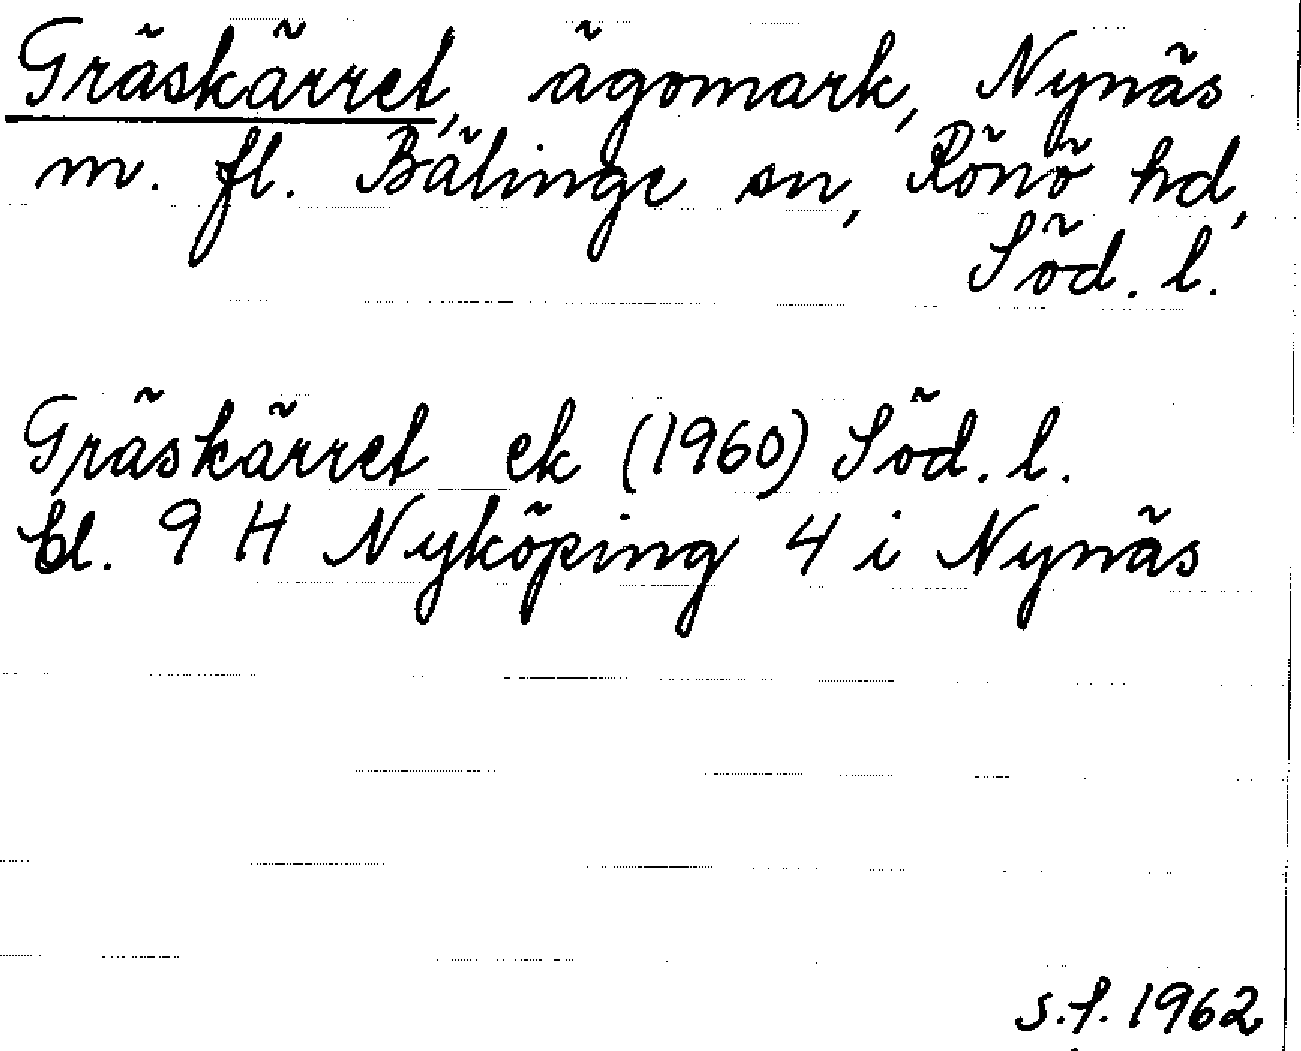 Gräskärret, ägomark, Nynäs
m. fl. Bälinge sn, Rönö hd,
Söd. l.
Gräskärret ek (1960) Söd. l.
bl. 9 H Nyköping 4 i Nynäs
s.f. 1962